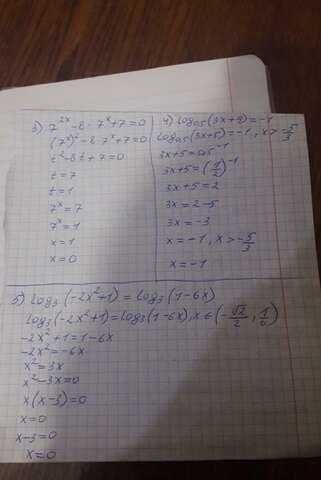 3) 7^{2x} - 8 · 7^x + 7 = 0
(7^x)^2 - 8 · 7^x + 7 = 0
t^2 - 8t + 7 = 0
t = 7
t = 1
7^x = 7
7^x = 1
x = 1
x = 0
4) log_{0,5}(3x+5) = -1
log_{0,5}(3x+5) = -1, x > -5/3
3x+5 = 0,5^{-1}
3x+5 = (1/2)^{-1}
3x+5 = 2
3x = 2-5
3x = -3
x = -1, x > -5/3
x = -1
5) log_3(-2x^2+1) = log_3(1-6x)
log_3(-2x^2+1) = log_3(1-6x), x ∈ (-√2/2, 1/6)
-2x^2+1 = 1-6x
-2x^2 = -6x
x^2 = 3x
x^2-3x = 0
x(x-3) = 0
x = 0
x-3 = 0
x = 0